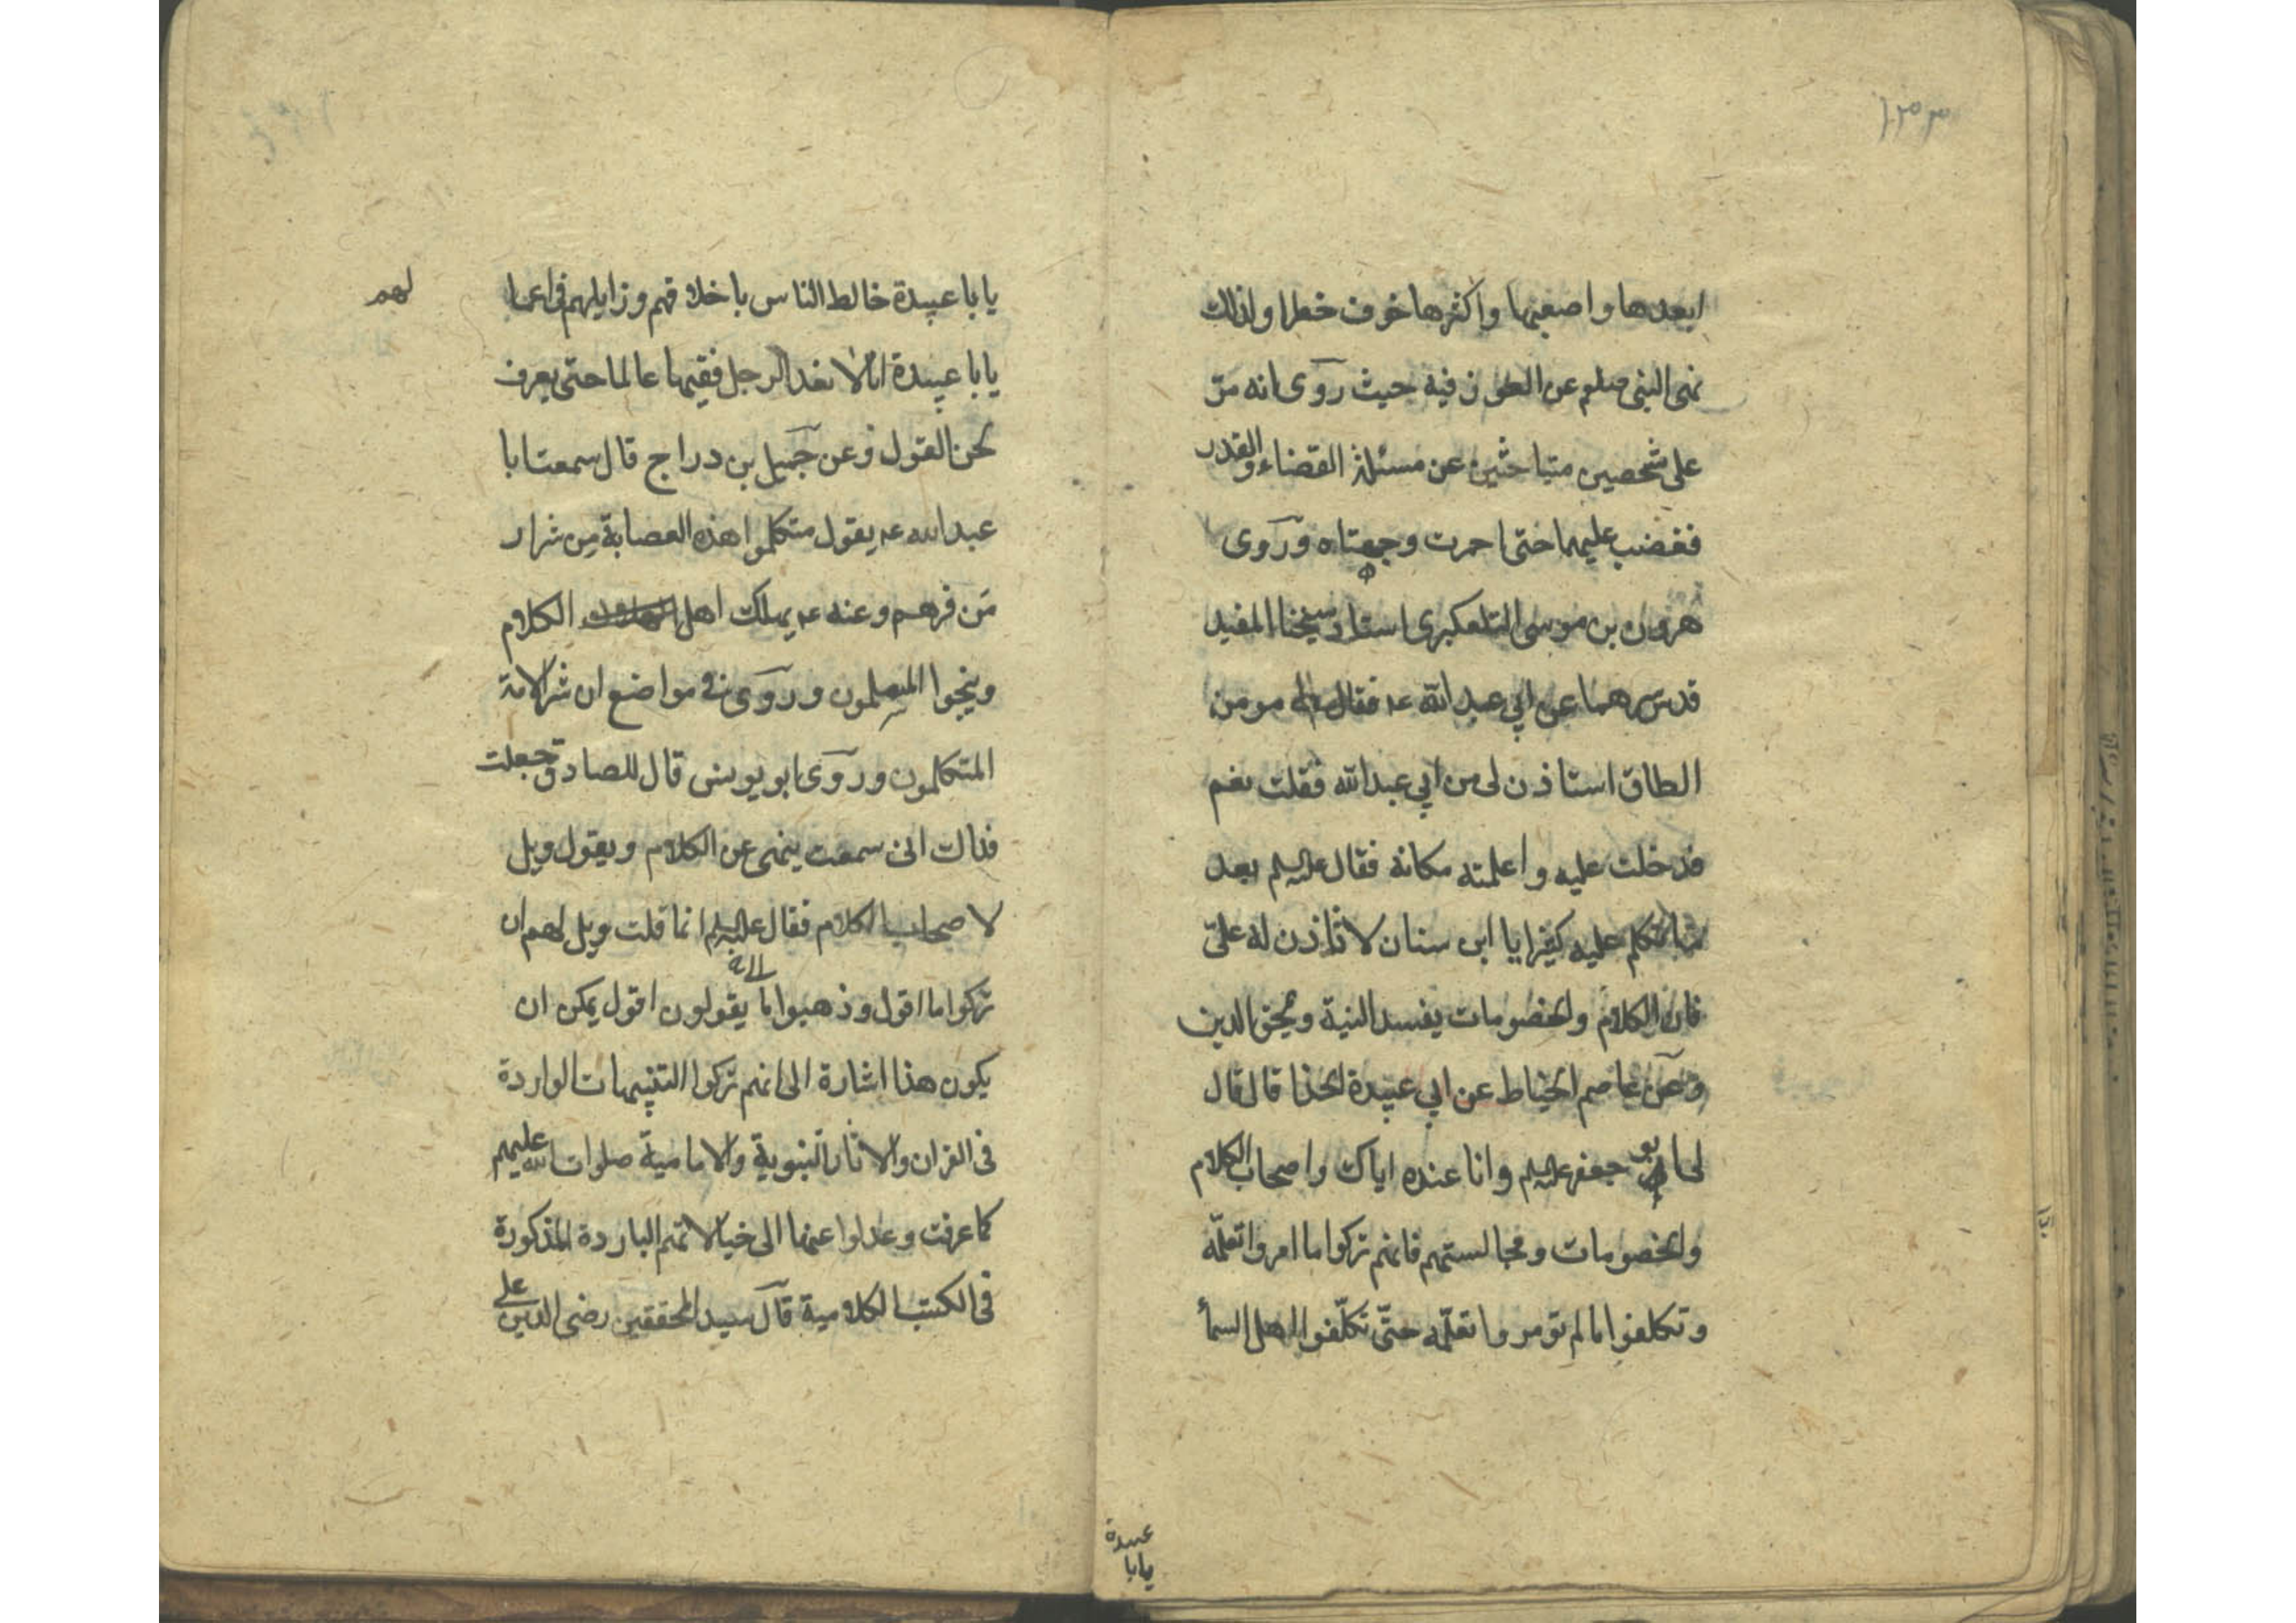 ١٣٣
ابعدها واصعبها واكثرها خوف خطرا ولذلك
نهى النبى صلعم عن الخوض فيه حيث روى انه مرّ
على شخصين متباحثين عن مسئلة القضاء والقدر
فغضب عليهما حتى احمرت وجنتاه وروى
هرون بن موسى التلعكبرى استاد شيخنا المفيد
قدس سرهما عن ابي عبد الله عه فقال له مومن
الطاق استاذن لى من ابي عبد الله فقلت نعم
فدخلت عليه واعلمته مكانه فقال عليه السلم بعد
عليه كفرا يا ابن سنان لا تاذن له علىّ
فان الكلام والخصومات يفسد النية ويمحق الدين
وعن عاصم الحناط عن ابي عبيدة الحذا قال قال
لى ابو جعفر عليه السلم وانا عنده اياك واصحاب الكلام
والخصومات ومجالستهم فانهم تركوا ما امروا تعلّمه
وتكلفوا ما لم تومروا تعلّمه حتّى تكلّفوا اهل السمأ
عبيدة
يابا
يابا عبيدة خالط الناس باخلاقهم وزايلهم فى اعما
لهم
يابا عبيدة انا لا نعد الرجل فقيها عالما حتى يعرف
لحن القول وعن جميل بن دراج قال سمعت ابا
عبد الله عه يقول متكلموا هذه العصابة من شرار
من فرهم وعنه عه يهلك اهل الكلام
وينجوا المسلمون وروى فى مواضع ان شر الامة
المتكلمون وروى ابو يوسف قال للصادق جعلت
فداك انى سمعت ينهى عن الكلام ويقول ويل
لاصحاب الكلام فقال عليه السلم انما قلت ويل لهم ان
تركوا ما اقول وذهبوا الى ما يقولون اقول يمكن ان
يكون هذا اشارة الى انهم تركوا التنبيهات الواردة
فى القران والاثار النبوية والامامية صلوات الله عليهم
كما عرفت وعدلوا عنها الى خيالاتهم الباردة المذكورة
فى الكتب الكلامية قال سيد المحققين رضى الدين على